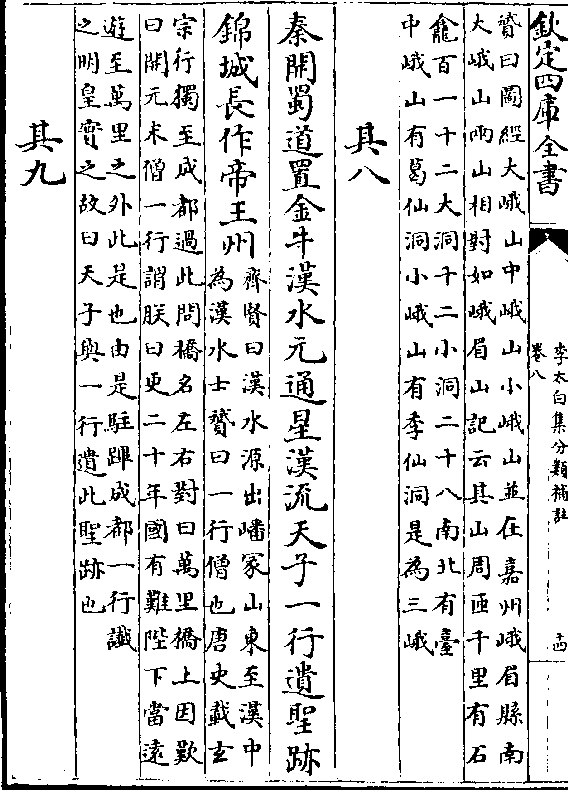 欽定四庫全書
李太白集分類補註
卷八
十四
贇曰圖經大峨山中峨山小峨山並在嘉州峨眉縣南
大峨山兩山相對如峨眉山記云其山周匝千里有石
龕百一十二大洞十二小洞二十八南北有臺
中峨山有葛仙洞小峨山有李仙洞是為三峨
其八
秦開蜀道置金牛漢水元通星漢流天子一行遺聖跡
錦城長作帝王州齊賢曰漢水源出嶓冢山東至漢中
為漢水士贇曰一行僧也唐史載玄
宗行獨至成都過此問橋名左右對曰萬里橋上因歎
曰開元末僧一行謂朕曰更二十年國有難陛下當遠
遊至萬里之外此是也由是駐蹕成都一行讖
之明皇實之故曰天子與一行遺此聖跡也
其九